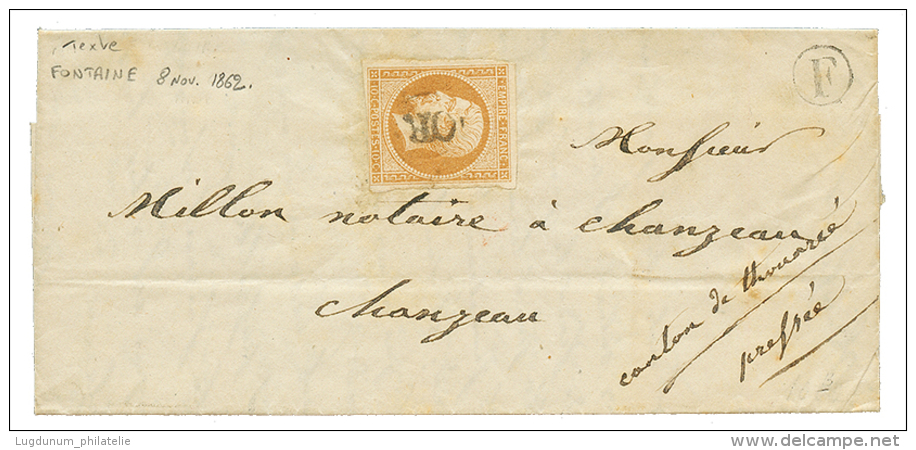 Texte
FONTAINE 8 NOV. 1862.
F
EMPIRE FRANC.
10 C. POSTES 10 C.
OR
Monsieur
Millon notaire à Chanzeau
Chanzeau
canton de thouarcé
pressée
Lugdunum_philatelie
www.delcampe.net